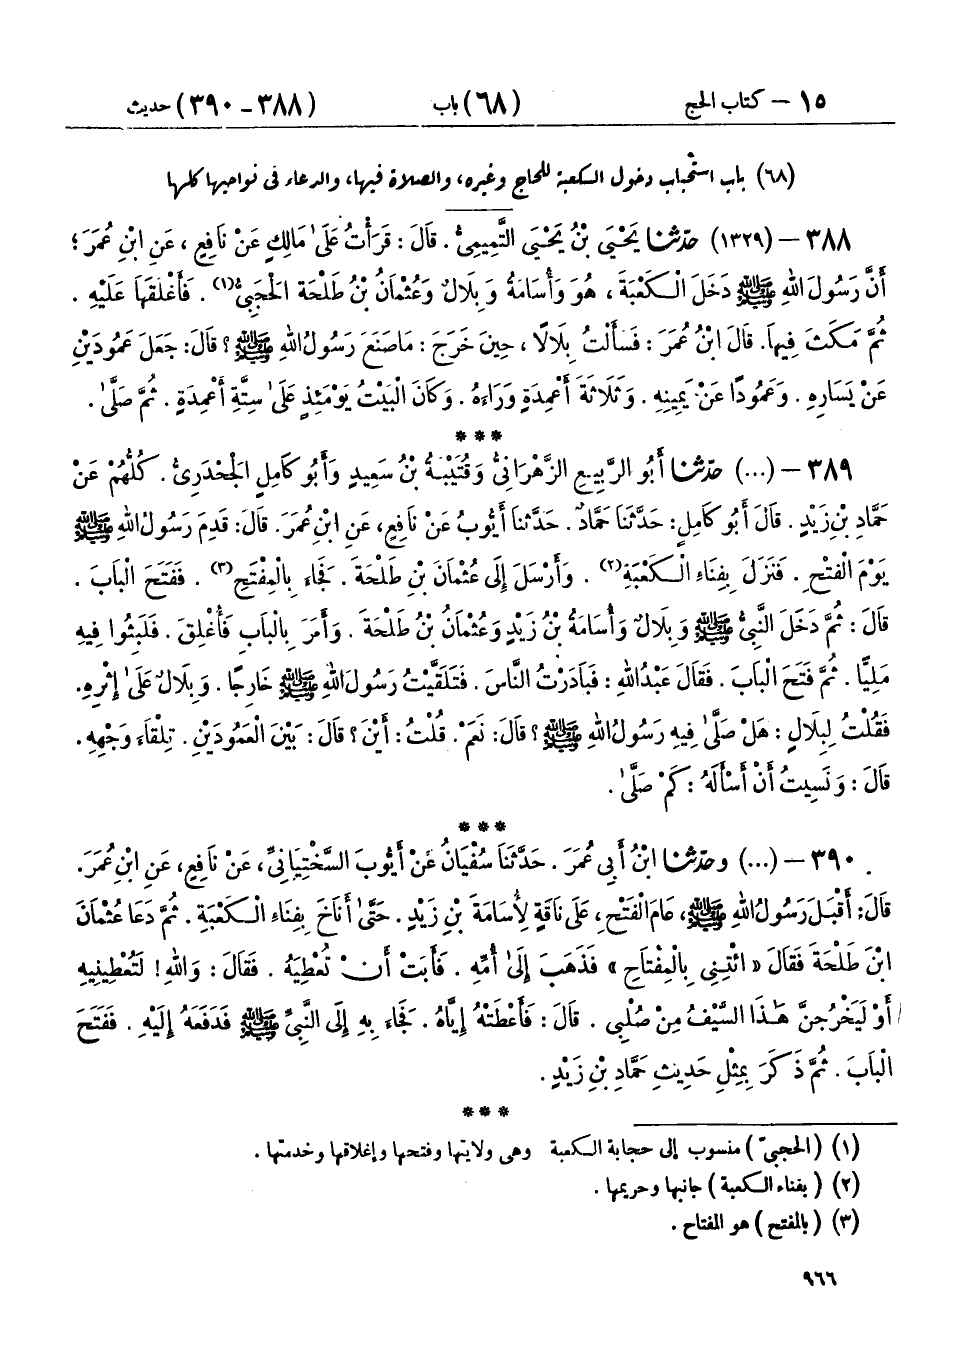 ١٥ – كتاب الحج (٦٨) باب (٣٨٨ - ٣٩٠) حديث
(٦٨) باب استحباب دخول الكعبة للحاج وغيره، والصلاة فيها، والدعاء فى نواحيها كلها
٣٨٨ – (١٣٢٩) حَدَّثَنَا يَحْيَىٰ بْنُ يَحْيَىٰ التَّمِيمِىُّ. قَالَ: قَرَأْتُ عَلَىٰ مَالِكٍ عَنْ نَافِعٍ، عَنِ ابْنِ عُمَرَ؛
أَنَّ رَسُولَ اللهِ ﷺ دَخَلَ الْكَعْبَةَ، هُوَ وَأُسَامَةُ وَبِلَالٌ وَعُثْمَانُ بْنُ طَلْحَةَ الْحَجَبِىُّ(١). فَأَغْلَقَهَا عَلَيْهِ.
ثُمَّ مَكَثَ فِيهَا. قَالَ ابْنُ عُمَرَ: فَسَأَلْتُ بِلَالًا، حِينَ خَرَجَ: مَا صَنَعَ رَسُولُ اللهِ ﷺ؟ قَالَ: جَعَلَ عَمُودَيْنِ
عَنْ يَسَارِهِ. وَعَمُودًا عَنْ يَمِينِهِ. وَثَلَاثَةَ أَعْمِدَةٍ وَرَاءَهُ. وَكَانَ الْبَيْتُ يَوْمَئِذٍ عَلَىٰ سِتَّةِ أَعْمِدَةٍ. ثُمَّ صَلَّىٰ.
***
٣٨٩ – (...) حَدَّثَنَا أَبُو الرَّبِيعِ الزَّهْرَانِىُّ وَقُتَيْبَةُ بْنُ سَعِيدٍ وَأَبُو كَامِلٍ الْجَحْدَرِىُّ. كُلُّهُمْ عَنْ
حَمَّادِ بْنِ زَيْدٍ. قَالَ أَبُو كَامِلٍ: حَدَّثَنَا حَمَّادٌ. حَدَّثَنَا أَيُّوبُ عَنْ نَافِعٍ، عَنِ ابْنِ عُمَرَ. قَالَ: قَدِمَ رَسُولُ اللهِ ﷺ
يَوْمَ الْفَتْحِ. فَنَزَلَ بِفِنَاءِ الْكَعْبَةِ(٢). وَأَرْسَلَ إِلَى عُثْمَانَ بْنِ طَلْحَةَ. فَجَاءَ بِالْمِفْتَحِ(٣). فَفَتَحَ الْبَابَ.
قَالَ: ثُمَّ دَخَلَ النَّبِىُّ ﷺ وَبِلَالٌ وَأُسَامَةُ بْنُ زَيْدٍ وَعُثْمَانُ بْنُ طَلْحَةَ. وَأَمَرَ بِالْبَابِ فَأُغْلِقَ. فَلَبِثُوا فِيهِ
مَلِيًّا. ثُمَّ فَتَحَ الْبَابَ. فَقَالَ عَبْدُ اللهِ: فَبَادَرْتُ النَّاسَ. فَتَلَقَّيْتُ رَسُولَ اللهِ ﷺ خَارِجًا. وَبِلَالٌ عَلَىٰ إِثْرِهِ.
فَقُلْتُ لِبِلَالٍ: هَلْ صَلَّىٰ فِيهِ رَسُولُ اللهِ ﷺ؟ قَالَ: نَعَمْ. قُلْتُ: أَيْنَ؟ قَالَ: بَيْنَ الْعَمُودَيْنِ. تِلْقَاءَ وَجْهِهِ.
قَالَ: وَنَسِيتُ أَنْ أَسْأَلَهُ: كَمْ صَلَّىٰ.
***
٣٩٠ – (...) وَحَدَّثَنَا ابْنُ أَبِي عُمَرَ. حَدَّثَنَا سُفْيَانُ عَنْ أَيُّوبَ السَّخْتِيَانِيِّ، عَنْ نَافِعٍ، عَنِ ابْنِ عُمَرَ.
قَالَ: أَقْبَلَ رَسُولُ اللهِ ﷺ، عَامَ الْفَتْحِ، عَلَىٰ نَاقَةٍ لِأُسَامَةَ بْنِ زَيْدٍ. حَتَّىٰ أَنَاخَ بِفِنَاءِ الْكَعْبَةِ. ثُمَّ دَعَا عُثْمَانَ
ابْنَ طَلْحَةَ فَقَالَ «ائْتِنِي بِالْمِفْتَاحِ» فَذَهَبَ إِلَىٰ أُمِّهِ. فَأَبَتْ أَنْ تُعْطِيَهُ. فَقَالَ: وَاللهِ! لَتُعْطِينِيهِ
أَوْ لَيَخْرُجَنَّ هَٰذَا السَّيْفُ مِنْ صُلْبِي. قَالَ: فَأَعْطَتْهُ إِيَّاهُ. فَجَاءَ بِهِ إِلَى النَّبِىِّ ﷺ فَدَفَعَهُ إِلَيْهِ. فَفَتَحَ
الْبَابَ. ثُمَّ ذَكَرَ بِمِثْلِ حَدِيثِ حَمَّادِ بْنِ زَيْدٍ.
***
(١) (الحجبىّ) منسوب إلى حجابة الكعبة وهى ولايتها وفتحها وإغلاقها وخدمتها.
(٢) (بفناء الكعبة) جانبها وحريمها.
(٣) (بالمفتح) هو المفتاح.
٩٦٦